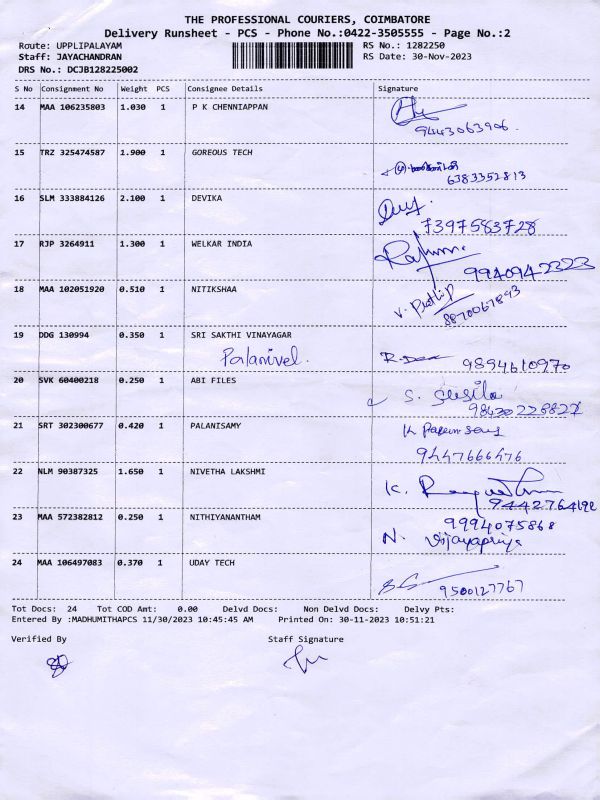 THE PROFESSIONAL COURIERS, COIMBATORE
Delivery Runsheet - PCS - Phone No.:0422-3505555 - Page No.:2
Route: UPPLIPALAYAM RS No.: 1282250
Staff: JAYACHANDRAN RS Date: 30-Nov-2023
DRS No.: DCJB128225002
S No Consignment No Weight PCS Consignee Details Signature
14 MAA 106235803 1.030 1 P K CHENNIAPPAN
9443063906.
15 TRZ 325474587 1.900 1 GOREOUS TECH
6383352813
16 SLM 333884126 2.100 1 DEVIKA
7397583728
17 RJP 3264911 1.300 1 WELKAR INDIA
9940942323
18 MAA 102051920 0.510 1 NITIKSHAA
8870067893
19 DDG 130994 0.350 1 SRI SAKTHI VINAYAGAR
Palanivel. 9894610970
20 SVK 60400218 0.250 1 ABI FILES S. Susila
21 SRT 302300677 0.420 1 PALANISAMY
9447666476
22 NLM 90387325 1.650 1 NIVETHA LAKSHMI K.
23 MAA 572382812 0.250 1 NITHIYANANTHAM 9994075868
N. Vijayapriya
24 MAA 106497083 0.370 1 UDAY TECH
9500127767
Tot Docs: 24 Tot COD Amt: 0.00 Delvd Docs: Non Delvd Docs: Delvy Pts:
Entered By :MADHUMITHAPCS 11/30/2023 10:45:45 AM Printed On: 30-11-2023 10:51:21
Verified By Staff Signature